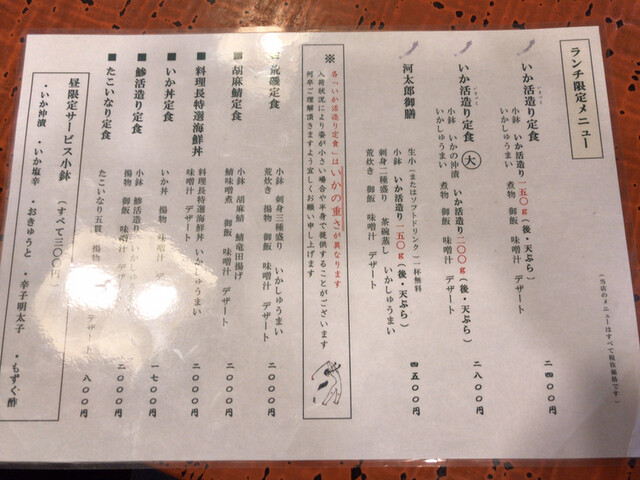 ランチ限定メニュー
(当店のメニューはすべて税抜価格です)
いか活造り定食
小鉢 いか活造り一五〇g(後・天ぷら)
いかしゅうまい 煮物 御飯 味噌汁 デザート
二四〇〇円
いか活造り定食 大
小鉢 いかの沖漬 いか活造り二〇〇g(後・天ぷら)
いかしゅうまい 煮物 御飯 味噌汁 デザート
二八〇〇円
河太郎御膳
生小(またはソフトドリンク)一杯無料
小鉢 いか活造り一五〇g(後・天ぷら)
刺身二種盛り 茶碗蒸し いかしゅうまい
荒炊き 御飯 味噌汁 デザート
四五〇〇円
※
各「いか活造り定食」はいかの重さが異なります
入荷状況により姿が小さい場合や半身で提供することがございます
何卒ご理解頂きますよう宜しくお願い申し上げます
荒磯定食
小鉢 刺身三種盛り いかしゅうまい
荒炊き 揚物 御飯 味噌汁 デザート
二〇〇〇円
■胡麻鯖定食
小鉢 胡麻鯖 鯖竜田揚げ
鯖味噌煮 御飯 味噌汁 デザート
二〇〇〇円
■料理長特選海鮮丼
料理長特選海鮮丼 いかしゅうまい
味噌汁 デザート
二〇〇〇円
■いか丼定食
いか丼 揚物 味噌汁 デザート
一七〇〇円
■鯵活造り定食
小鉢 鯵活造り いかしゅうまい
揚物 御飯 味噌汁 デザート
二〇〇〇円
■たこいなり定食
たこいなり五貫 揚物 デザート
八〇〇円
昼限定サービス小鉢 (すべて三〇〇円)
・いか沖漬 ・いか塩辛 ・おきゅうと ・辛子明太子 ・もずく酢